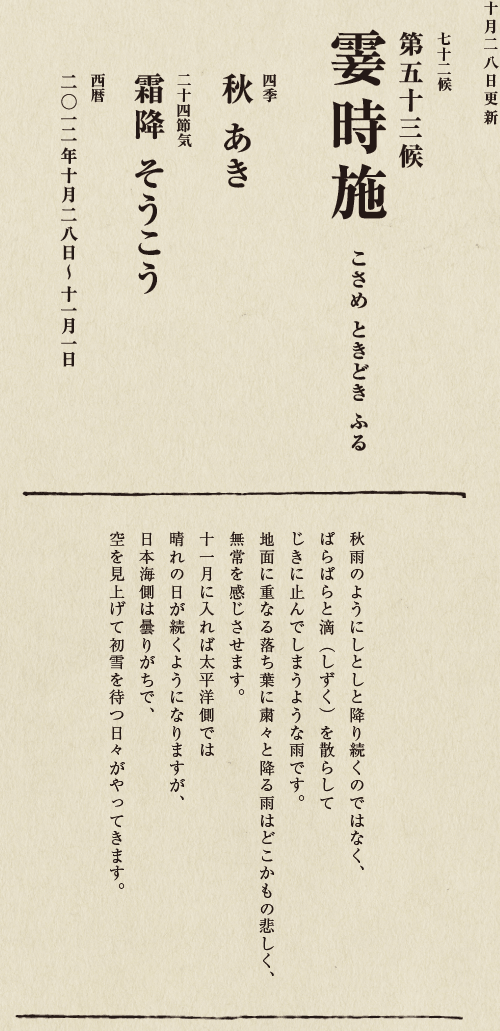 十月二八日更新
七十二候
第五十三候
霎時施 こさめ ときどき ふる
四季
秋 あき
二十四節気
霜降 そうこう
西暦
二〇一二年十月二八日〜十一月一日
秋雨のようにしとしと降り続くのではなく、
ぱらぱらと滴（しずく）を散らして
じきに止んでしまうような雨です。
地面に重なる落ち葉に粛々と降る雨はどこかもの悲しく、
無常を感じさせます。
十一月に入れば太平洋側では
晴れの日が続くようになりますが、
日本海側は曇りがちで、
空を見上げて初雪を待つ日々がやってきます。